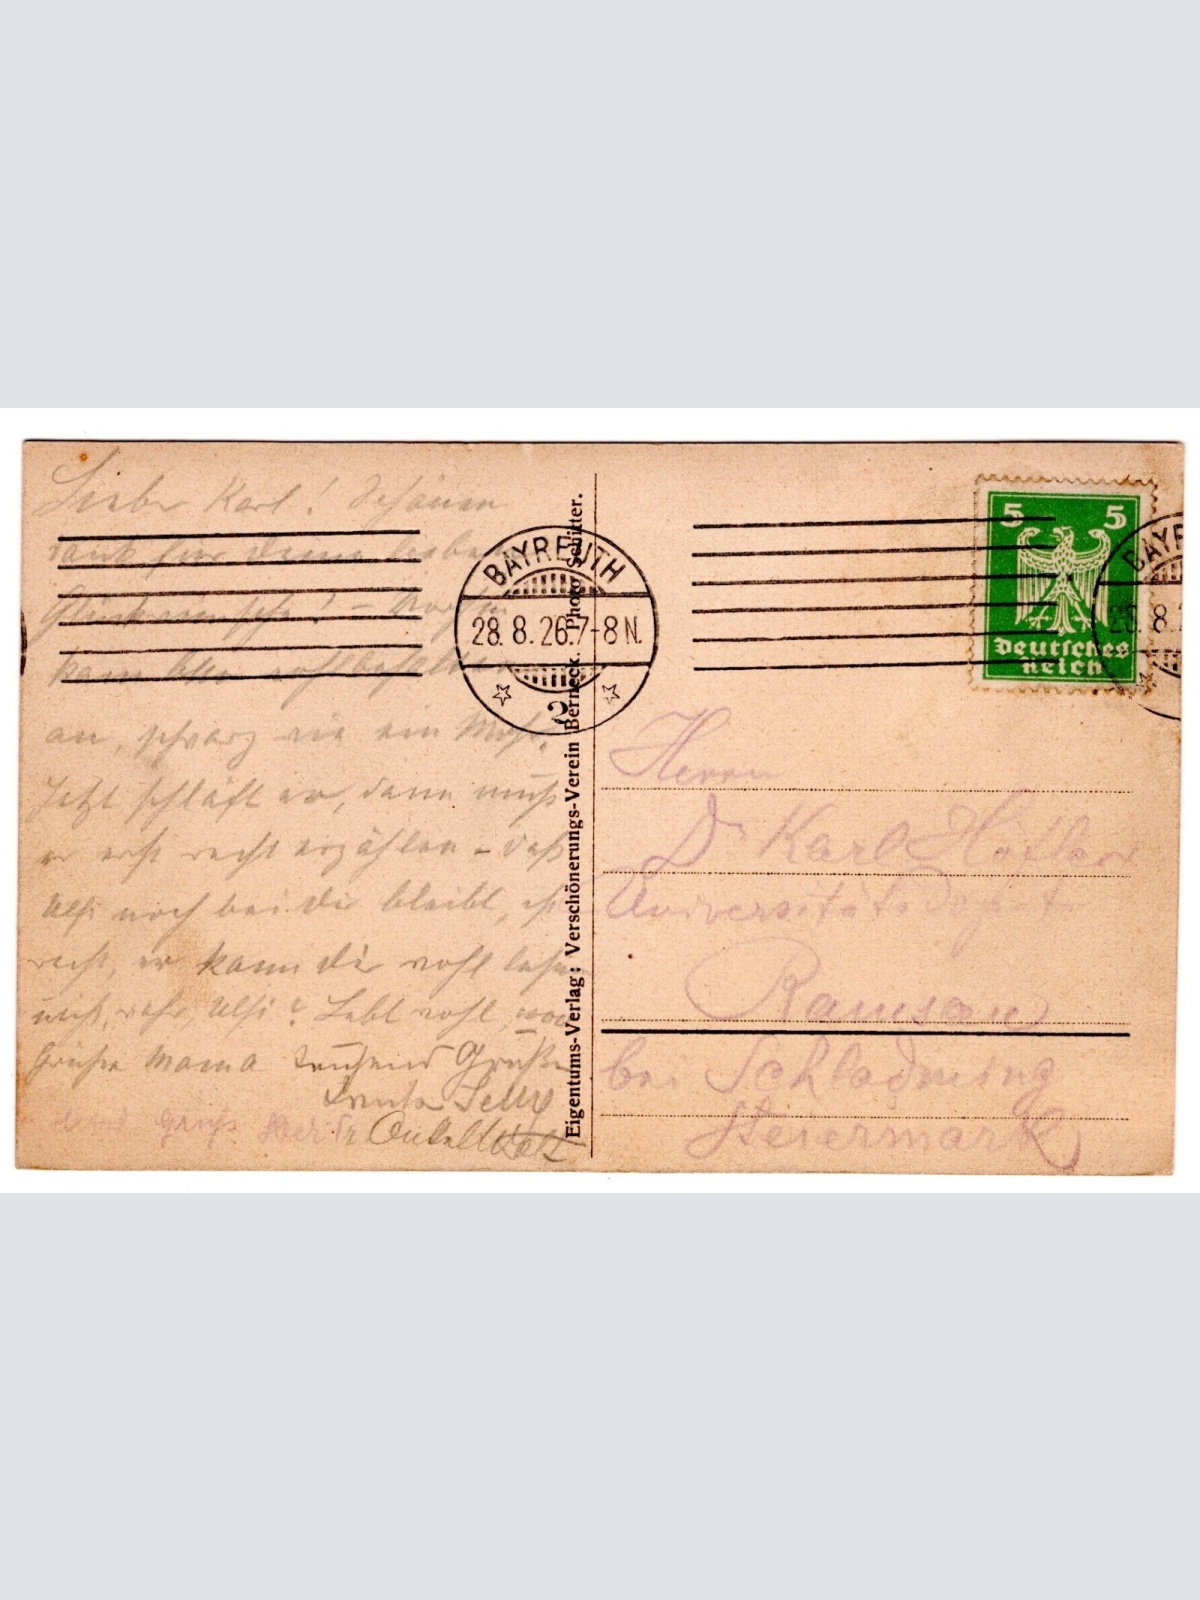 Lieber Karl! Schönen
Dank für deine lieben
Glückwünsche! –
kam wohlbehalten
an, schwarz wie ein
Jetzt schläft er, dann muß
er erst recht erzählen – daß
Ulfi noch bei dir bleibt, ist
recht, er kann dir wohl
nicht, wahr, Ulfi? Lebt wohl,
Grüße Mama tausend Grüße
Tante
Onkel
Eigentums-Verlag: Verschönerungs-Verein Berneck. Photo Schlitter.
BAYREUTH
28. 8. 26. 7-8 N.
2
5 5
Deutsches
Reich
BAYR
28. 8.
Herrn
Dr Karl
Universitäts Dozent
Ramsau
bei Schladming
Steiermark